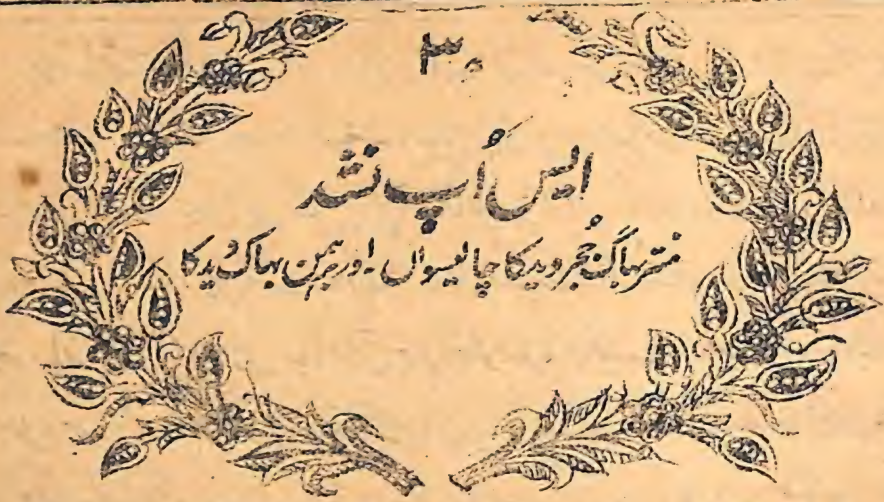 ۳
ایس اُپ نشد
منتر بھاگ یُجروید کا چالیسواں ۔ اور برہمن بھاگ وید کا